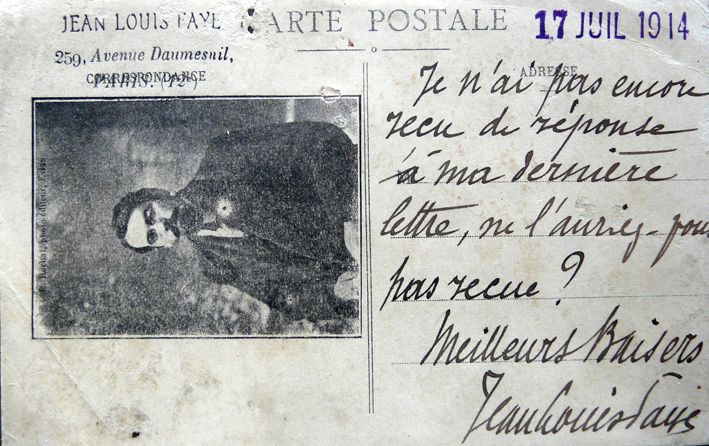 JEAN LOUIS FAVE
CARTE POSTALE
17 JUIL 1914
259, Avenue Daumesnil,
CORRESPONDANCE
PARIS. (12e)
ADRESSE
Je n'ai pas encore
recu de réponse
à ma dernière
lettre, ne l'auriez-vous
pas recue?
Meilleurs Baisers
Jean Louis Faye